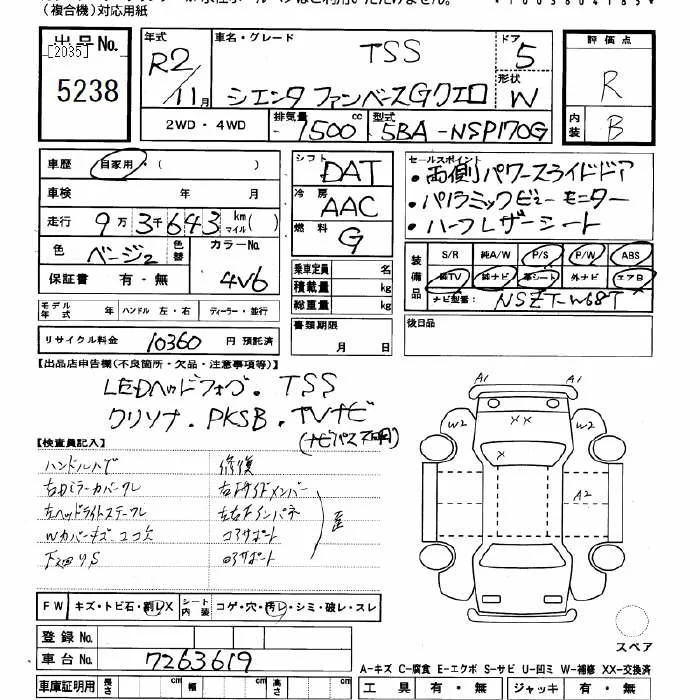 (複合機)対応用紙
出品No.
[2035]
5238
年式
R2/11月
車名・グレード
TSS
シエンタ ファンベースGクエロ
ドア
5
形状
W
2WD・4WD
排気量
1500 cc
型式
5BA-NSP170G
評価点
R
内装
B
車歴
自家用・( )
車検 年 月
走行 9万3千643 km マイル( )
色 ベージ2 色替
カラーNo. 4V6
保証書 有・無
シフト
DAT
冷房
AAC
燃料
G
乗車定員 名
積載量 kg
総重量 kg
セールスポイント
・両側パワースライドドア
・パノラミックビューモニター
・ハーフレザーシート
装備品
S/R 純A/W P/S P/W ABS
純TV 純ナビ 革シート 外ナビ エアB
ナビ型番: NSZT-W68T
モデル年式 年 ハンドル 左・右 ディーラー・並行
リサイクル料金 10360 円 預託済
書類期限
月 日
後日品
【出品店申告欄(不良箇所・欠品・注意事項等)】
LEDヘッドフォグ・TSS
クリソナ・PKSB・TVナビ
(ナビパス不明)
【検査員記入】
ハンドルハゲ 修復
右ドアミラーカバークレ 右Fサイドメンバー
左ヘッドライトステークレ 左右Fインパネ
Wカバーキズ・ココ欠 コアサポート
下廻りS ロアサポート
歪
A1 A1
W2 XX W2
X
A2
FW キズ・トビ石・割レX
シート内装 コゲ・穴・汚レ・シミ・破レ・スレ
登録No.
車台No. 7263619
スペア
A-キズ C-腐食 E-エクボ S-サビ U-凹ミ W-補修 XX-交換済
車庫証明用 長さ cm 幅 cm 高さ cm
工具 有・無 ジャッキ 有・無